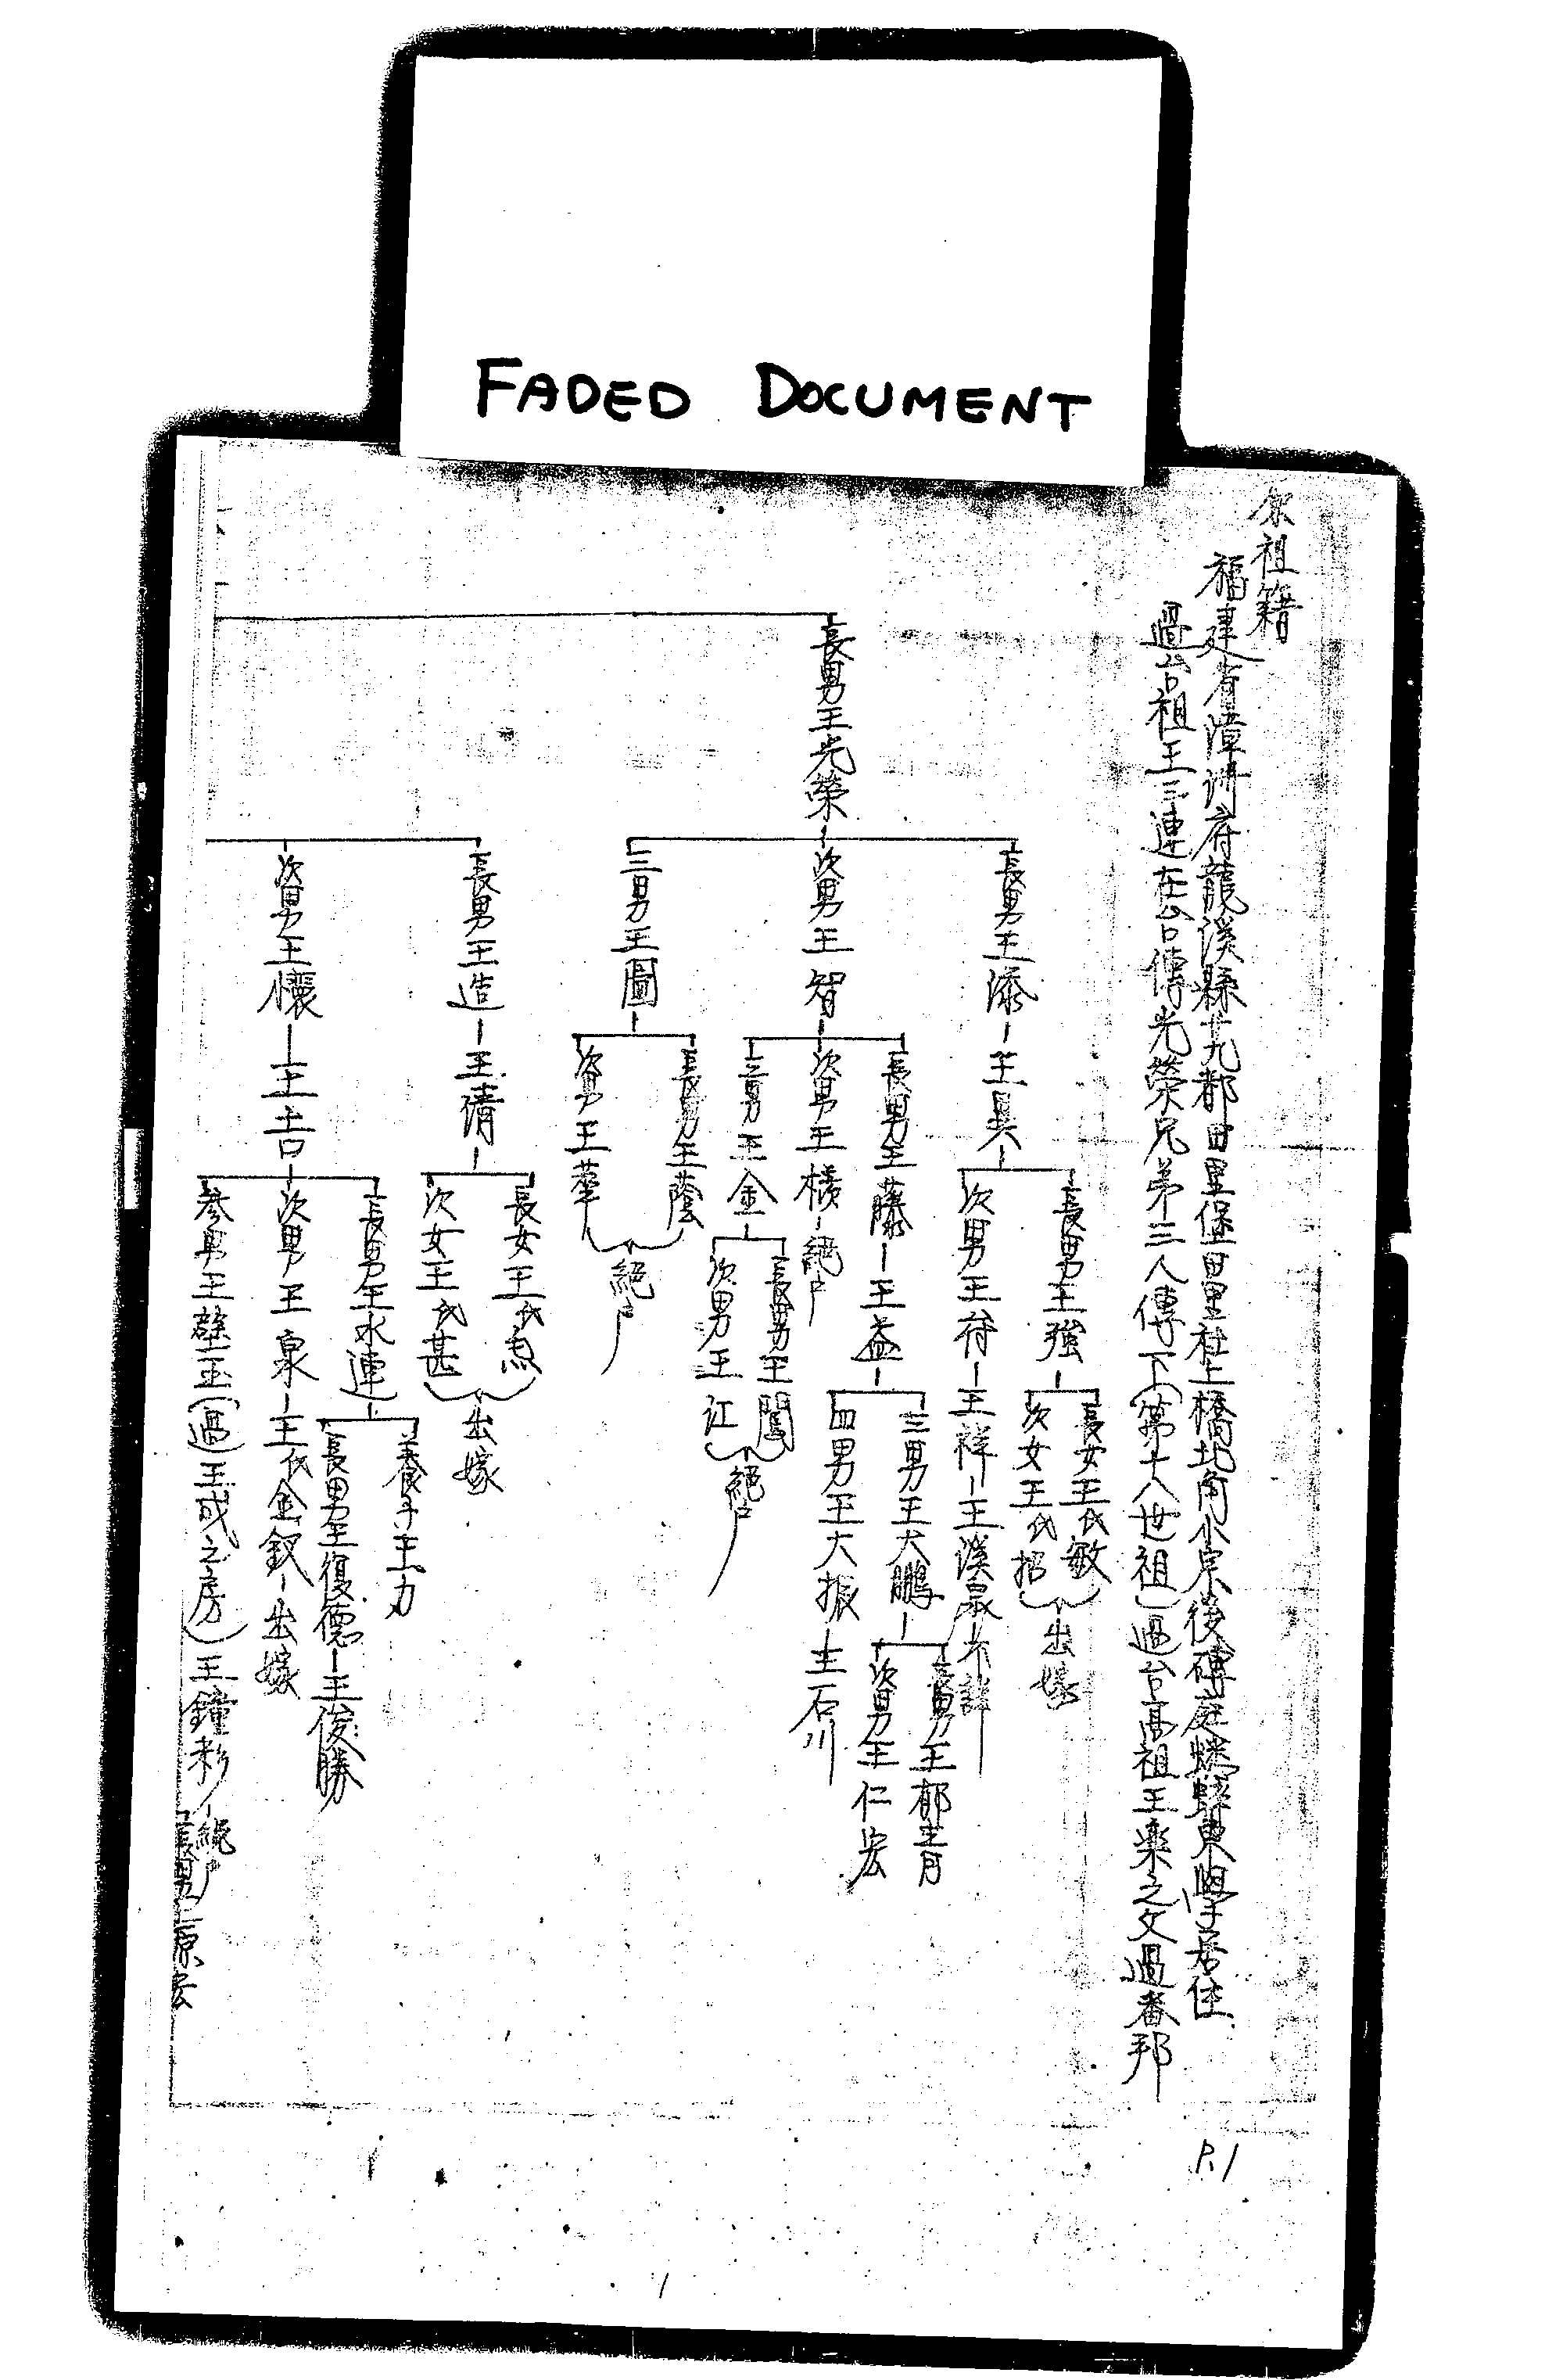 FADED DOCUMENT
祖籍
福建省漳州府龍溪縣十九都田里堡田里社上橋北角小宗後磚庭 東 居住
過台祖王三連在台傳光榮兄弟三人傳下(第十八世祖)過台高祖王 之文過番邦
長男王光榮
長男王添
王昊
長男王強
長女王氏敏
次女王氏招
出嫁
次男王符
王祥
王溪泉
不詳
次男王智
長男王藤
王益
三男王大鵬
長男王郁青
次男王仁宏
四男王大振
王石川
次男王橫
絕戶
三男王金
長男王
次男王江
絕戶
三男王圖
長男王蔭
次男王華
絕戶
長男王造
王清
長女王氏
次女王氏甚
出嫁
次男王懷
王吉
長男王水連
養子王力
長男王復德
王俊勝
次男王泉
王氏金釵
出嫁
參男王 玉(過)王成之房)王鐘彩
絕戶
長男
P.1